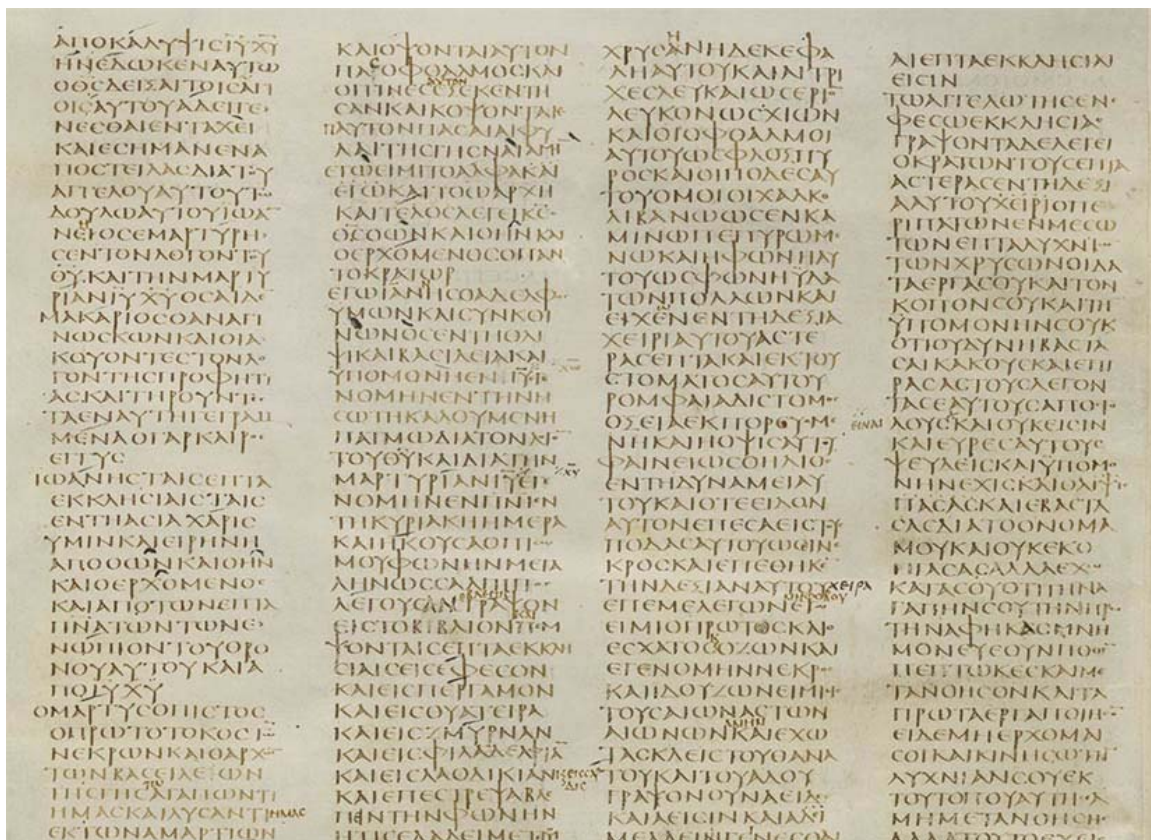 ΑΠΟΚΑΛΥΨΙϹΙΥΧΥ
ΗΝΕΔΩΚΕΝΑΥΤΩ
ΟΘϹΔΕΙΞΑΙΤΟΙϹΑΓΙ
ΟΙϹΑΥΤΟΥΑΔΕΙΓΕ
ΝΕϹΘΑΙΕΝΤΑΧΕΙ
ΚΑΙΕϹΗΜΑΝΕΝΑ
ΠΟϹΤΕΙΛΑϹΔΙΑΤΟΥ
ΑΓΓΕΛΟΥΑΥΤΟΥΤΩ
ΔΟΥΛΩΑΥΤΟΥΙΩΑ
ΝΕΙΟϹΕΜΑΡΤΥΡΗ
ϹΕΝΤΟΝΛΟΓΟΝΤΟΥ
ΘΥΚΑΙΤΗΝΜΑΡΤΥ
ΡΙΑΝΙΥΧΥΟϹΑΙΔΕ
ΜΑΚΑΡΙΟϹΟΑΝΑΓΙ
ΝΩϹΚΩΝΚΑΙΟΙΑ
ΚΟΥΟΝΤΕϹΤΟΝΛΟ
ΓΟΝΤΗϹΠΡΟΦΗΤΙ
ΑϹΚΑΙΤΗΡΟΥΝΤΕϹ
ΤΑΕΝΑΥΤΗΓΕΓΡΑΜ
ΜΕΝΑΟΓΑΡΚΑΙΡΟϹ
ΕΓΓΥϹ
ΙΩΑΝΗϹΤΑΙϹΕΠΤΑ
ΕΚΚΛΗϹΙΑΙϹΤΑΙϹ
ΕΝΤΗΑϹΙΑΧΑΡΙϹ
ΥΜΙΝΚΑΙΕΙΡΗΝΗ
ΑΠΟΟΩΝΚΑΙΟΗΝ
ΚΑΙΟΕΡΧΟΜΕΝΟϹ
ΚΑΙΑΠΟΤΩΝΕΠΤΑ
ΠΝΑΤΩΝΤΩΝΕ
ΝΩΠΙΟΝΤΟΥΘΡΟ
ΝΟΥΑΥΤΟΥΚΑΙΑ
ΠΟΙΥΧΥ
ΟΜΑΡΤΥϹΟΠΙϹΤΟϹ
ΟΠΡΩΤΟΤΟΚΟϹΤΩ
ΝΕΚΡΩΝΚΑΙΟΑΡΧΩ
ΤΩΝΒΑϹΕΙΛΕΩΝ
ΤΗϹΓΗϹΑΓΑΠΩΝΤΙ
ΗΜΑϹΚΑΙΛΥϹΑΝΤΙΗΜΑϹ
ΕΚΤΩΝΑΜΑΡΤΙΩΝ
ΚΑΙΟΨΟΝΤΑΙΑΥΤΟΝ
ΠΑϹΟΦΘΑΛΜΟϹΚΑΙ
ΟΙΤΙΝΕϹΕΞΕΚΕΝΤΗ
ϹΑΝΚΑΙΚΟΨΟΝΤΑΙΕ
ΠΑΥΤΟΝΠΑϹΑΙΑΙΦΥ
ΛΑΙΤΗϹΓΗϹΝΑΙΑΜΗ
ΕΓΩΕΙΜΙΤΟΑΛΦΑΚΑΙ
ΕΓΩΚΑΙΤΟΩΑΡΧΗ
ΚΑΙΤΕΛΟϹΛΕΓΕΙΚϹ
ΟΘϹΟΩΝΚΑΙΟΗΝΚΑΙ
ΟΕΡΧΟΜΕΝΟϹΟΠΑΝ
ΤΟΚΡΑΤΩΡ
ΕΓΩΙΩΑΝΗϹΟΑΔΕΛΦΟϹ
ΥΜΩΝΚΑΙϹΥΝΚΟΙ
ΝΩΝΟϹΕΝΤΗΘΛΙ
ΨΙΚΑΙΒΑϹΙΛΕΙΑΚΑΙ
ΥΠΟΜΟΝΗΕΝΙΥΕΓΕ
ΝΟΜΗΝΕΝΤΗΝΗ
ϹΩΤΗΚΑΛΟΥΜΕΝΗ
ΠΑΤΜΩΔΙΑΤΟΝΛΟ
ΓΟΝΤΟΥΘΥΚΑΙΔΙΑΤΗΝ
ΜΑΡΤΥΡΙΑΝΙΥΕΓΕ
ΝΟΜΗΝΕΝΠΝΙΕΝ
ΤΗΚΥΡΙΑΚΗΗΜΕΡΑ
ΚΑΙΗΚΟΥϹΑΟΠΙϹΩ
ΜΟΥΦΩΝΗΝΜΕΓΑ
ΛΗΝΩϹϹΑΛΠΙΓΓΟϹ
ΛΕΓΟΥϹΑΝΓΡΑΨΟΝ
ΕΙϹΤΟΒΙΒΛΙΟΝΠΕΜ
ΨΟΝΤΑΙϹΕΠΤΑΕΚΚΛΗ
ϹΙΑΙϹΕΙϹΕΦΕϹΟΝ
ΚΑΙΕΙϹΠΕΡΓΑΜΟΝ
ΚΑΙΕΙϹΘΥΑΤΕΙΡΑ
ΚΑΙΕΙϹΖΜΥΡΝΑΝ
ΚΑΙΕΙϹΦΙΛΑΔΕΛΦΙΑ
ΚΑΙΕΙϹΛΑΟΔΙΚΙΑΝ
ΚΑΙΕΠΕϹΤΡΕΨΑΒΛΕ
ΠΕΙΝΤΗΝΦΩΝΗΝ
ΗΤΙϹΕΛΑΛΕΙΜΕΤΕΜΟΥ
ΧΡΥϹΑΝΗΔΕΚΕΦΑ
ΛΗΑΥΤΟΥΚΑΙΑΙΤΡΙ
ΧΕϹΛΕΥΚΑΙΩϹΕΡΙΟΝ
ΛΕΥΚΟΝΩϹΧΙΩΝ
ΚΑΙΟΙΟΦΘΑΛΜΟΙ
ΑΥΤΟΥΩϹΦΛΟΞΠΥ
ΡΟϹΚΑΙΟΙΠΟΔΕϹΑΥ
ΤΟΥΟΜΟΙΟΙΧΑΛΚΟ
ΛΙΒΑΝΩΩϹΕΝΚΑ
ΜΙΝΩΠΕΠΥΡΩΜΕ
ΝΩΚΑΙΗΦΩΝΗΑΥ
ΤΟΥΩϹΦΩΝΗΥΔΑ
ΤΩΝΠΟΛΛΩΝΚΑΙ
ΕΙΧΕΝΕΝΤΗΔΕΞΙΑ
ΧΕΙΡΙΑΥΤΟΥΑϹΤΕ
ΡΑϹΕΠΤΑΚΑΙΕΚΤΟΥ
ϹΤΟΜΑΤΟϹΑΥΤΟΥ
ΡΟΜΦΑΙΑΔΙϹΤΟΜΟϹ
ΟΞΕΙΑΕΚΠΟΡΕΥΟΜΕ
ΝΗΚΑΙΗΟΨΙϹΑΥΤΟΥ
ΦΑΙΝΕΙΩϹΟΗΛΙΟϹ
ΕΝΤΗΔΥΝΑΜΕΙΑΥ
ΤΟΥΚΑΙΟΤΕΕΙΔΟΝ
ΑΥΤΟΝΕΠΕϹΑΕΙϹΤΟΥϹ
ΠΟΔΑϹΑΥΤΟΥΩϹΕΙΝΕ
ΚΡΟϹΚΑΙΕΠΕΘΗΚΕ
ΤΗΝΔΕΞΙΑΝΑΥΤΟΥΧΕΙΡΑ
ΕΠΕΜΕΛΕΓΩΝΕΓΩ
ΕΙΜΙΟΠΡΩΤΟϹΚΑΙΟ
ΕϹΧΑΤΟϹΟΖΩΝΚΑΙ
ΕΓΕΝΟΜΗΝΝΕΚΡΟϹ
ΚΑΙΙΔΟΥΖΩΝΕΙΜΙΕΙϹ
ΤΟΥϹΑΙΩΝΑϹΤΩΝ
ΑΙΩΝΩΝΚΑΙΕΧΩ
ΤΑϹΚΛΕΙϹΤΟΥΘΑΝΑ
ΤΟΥΚΑΙΤΟΥΑΔΟΥ
ΓΡΑΨΟΝΟΥΝΑΕΙΔΕϹ
ΚΑΙΑΕΙϹΙΝΚΑΙΑΔΙ
ΜΕΛΛΕΙΓΕΝΕϹΘΑΙ
ΑΙΕΠΤΑΕΚΚΛΗϹΙΑΙ
ΕΙϹΙΝ
ΤΩΑΓΓΕΛΩΤΗϹΕΝΕ
ΦΕϹΩΕΚΚΛΗϹΙΑϹ
ΓΡΑΨΟΝΤΑΔΕΛΕΓΕΙ
ΟΚΡΑΤΩΝΤΟΥϹΕΠΤΑ
ΑϹΤΕΡΑϹΕΝΤΗΔΕΞΙ
ΑΑΥΤΟΥΧΕΙΡΙΟΠΕ
ΡΙΠΑΤΩΝΕΝΜΕϹΩ
ΤΩΝΕΠΤΑΛΥΧΝΙΩ
ΤΩΝΧΡΥϹΩΝΟΙΔΑ
ΤΑΕΡΓΑϹΟΥΚΑΙΤΟΝ
ΚΟΠΟΝϹΟΥΚΑΙΤΗ
ΥΠΟΜΟΝΗΝϹΟΥΚΑΙ
ΟΤΙΟΥΔΥΝΗΒΑϹΤΑ
ϹΑΙΚΑΚΟΥϹΚΑΙΕΠΙ
ΡΑϹΑϹΤΟΥϹΛΕΓΟΝ
ΤΑϹΕΑΥΤΟΥϹΑΠΟϹΤΟ
ΛΟΥϹΚΑΙΟΥΚΕΙϹΙΝ
ΚΑΙΕΥΡΕϹΑΥΤΟΥϹ
ΨΕΥΔΕΙϹΚΑΙΥΠΟΜΟ
ΝΗΝΕΧΙϹΚΑΙΘΛΙΨΙϹ
ΠΑϹΑϹΚΑΙΕΒΑϹΤΑ
ϹΑϹΔΙΑΤΟΟΝΟΜΑ
ΜΟΥΚΑΙΟΥΚΕΚΟ
ΠΙΑϹΑϹΑΛΛΑΕΧΩ
ΚΑΤΑϹΟΥΟΤΙΤΗΝΑ
ΓΑΠΗΝϹΟΥΤΗΝΠΡΩ
ΤΗΝΑΦΗΚΑϹΜΝΗ
ΜΟΝΕΥΕΟΥΝΠΟΘΕΝ
ΠΕΠΤΩΚΕϹΚΑΙΜΕ
ΤΑΝΟΗϹΟΝΚΑΙΤΑ
ΠΡΩΤΑΕΡΓΑΠΟΙΗϹΟΝ
ΕΙΔΕΜΗΕΡΧΟΜΑΙ
ϹΟΙΚΑΙΚΙΝΗϹΩΤΗ
ΛΥΧΝΙΑΝϹΟΥΕΚ
ΤΟΥΤΟΠΟΥΑΥΤΗϹΕΑ
ΜΗΜΕΤΑΝΟΗϹΗϹ